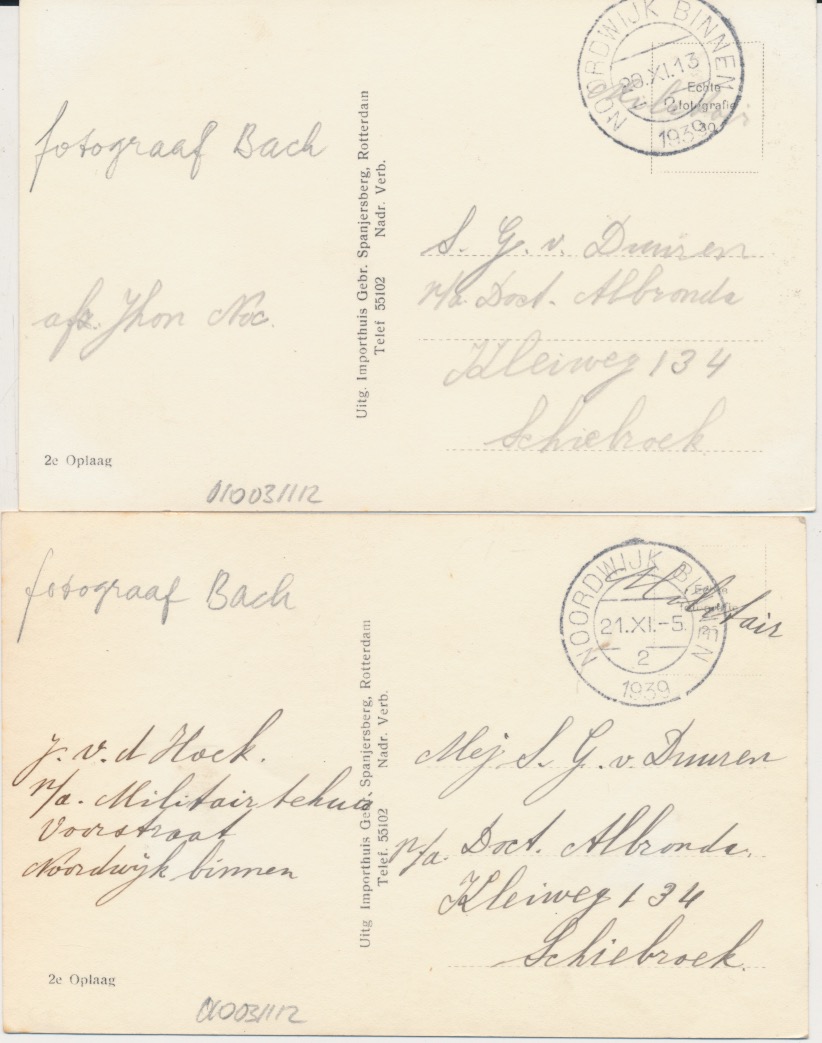 fotograaf Bach
afz. Jhon Noc.
2e Oplaag
010031112
Uitg. Importhuis Gebr. Spanjersberg, Rotterdam
Telef 55102 Nadr. Verb.
NOORDWIJK BINNEN
XI.13
2
1939
Echte
fotografie
Militair
S. G. v. Duuren
p/a Doct. Albronda
Kleiweg 134
Schiebroek
fotograaf Bach
J. v. d Hoek.
p/a. Militair tehuis
Voorstraat
Noordwijk binnen
2e Oplaag
010031112
Uitg Importhuis Gebr. Spanjersberg, Rotterdam
Telef. 55102 Nadr. Verb.
NOORDWIJK BINNEN
21.XI.-5.
2
1939
Echte
fotografie
Militair
Mej S. G. v. Duuren
p/a. Doct. Albronda.
Kleiweg 134
Schiebroek.